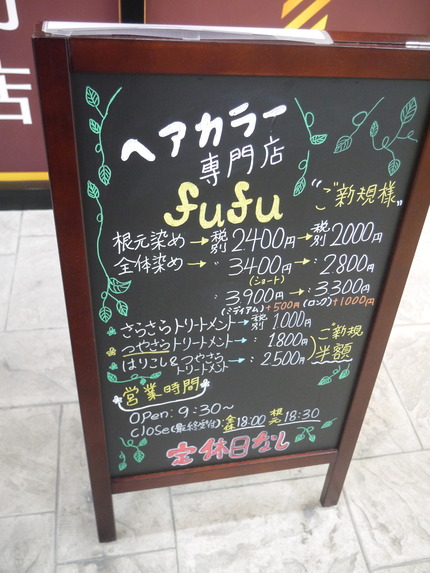 店
ヘアカラー
専門店
fufu
"ご新規様"
根元染め→税別2.400円→税別2000円
全体染め→〃3400円→〃2.800円
(ショート)
〃3.900円→〃3300円
(ミディアム)+500円(ロング)+1000円
さらさらトリートメント→税別1000円
つやさらトリートメント→〃1.800円
はりこし&つやさらトリートメント→〃2.500円
ご新規半額
営業時間
open: 9:30~
close(最終受付)全体18:00 根元18:30
定休日なし